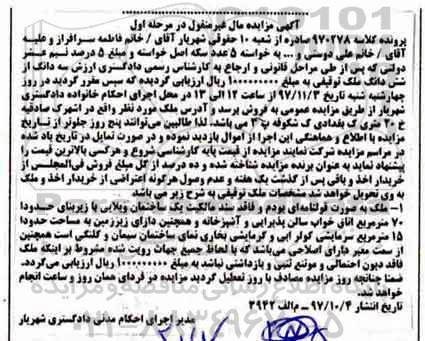 آگهی مزایده مال غیر منقول در مرحله اول
پرونده کلاسه ۹۷۰۲۷۸ صادره از شعبه ۱۰ حقوقی شهریار آقای / خانم فاطمه سرافراز و علیه
آقای / خانم علی دوستی و ... به خواسته ۵ عدد سکه اصل خواسته و مبلغ ۵ درصد نیم عشر
دولتی که پس از طی مراحل قانونی و ارجاع به کارشناس رسمی دادگستری ارزش سه دانگ از
شش دانگ ملک توقیفی به مبلغ ۱۰۰۰۰۰۰۰۰۰ ریال ارزیابی گردیده که سپس مقرر گردید در روز
چهارشنبه شنبه تاریخ ۹۷/۱۱/۳ ساعت ۱۲ الی ۱۳ در محل اجرای احکام خانواده دادگستری
شهریار از طریق مزایده عمومی به فروش برسد و آدرس ملک مورد نظر واقع در اشهرک صادقیه
خ ۲۰ متری ک بغدادی ک شکوفه پ ۳ می باشد. لذا طالبین می‌توانند پنج روز جلوتر از تاریخ
مزایده با اطلاع و هماهنگی این اجرا از اموال بازدید نموده و در صورت تمایل در تاریخ یاد شده
در مراسم مزایده شرکت نمایند مزایده از قیمت پایه کارشناسی شروع و هرکسی بالاترین قیمت را
پیشنهاد نماید به عنوان برنده مزایده شناخته شده و ده درصد از کل مبلغ فروش فی‌المجلس از
خریدار اخذ و باقی پس از گذشت یک هفته و عدم وصول هرگونه اعتراضی از خریدار اخذ و ملک
به وی تحویل خواهد شد مشخصات ملک توقیفی به شرح زیر می باشد
۱ - ملک به صورت قولنامه‌ای بوده و فاقد سند مالکیت یک ساختمان ویلایی با زیربنای حدودا
۷۰ مترمربع اتاق خواب سالن پذیرایی و آشپزخانه و همچنین دارای زیرزمین به مساحت حدودا
۱۵ مترمربع سرمایشی کولر آبی و گرمایشی بخاری نمای ساختمان سیمان و کلنگی است همچنین
از سمت معبر دارای اصلاحی می‌باشد که با لحاظ جمیع جهات رویت شده مشروط بر اینکه ملک
فاقد دیون احتمالی و موتمع ثبتی و بازداشتی نباشد به مبلغ ۱۰۰۰۰۰۰۰۰۰ ریال ارزیابی می‌گردد.
ضمنا چنانچه روز مزایده مصادف با روز تعطیل گردید مزایده در فردای همان روز و ساعت انجام
خواهد شد.
تاریخ انتشار ۹۷/۱۰/۴ ـ م‌الف ۳۹۴۲
مدیر اجرای احکام مدنی دادگستری شهریار